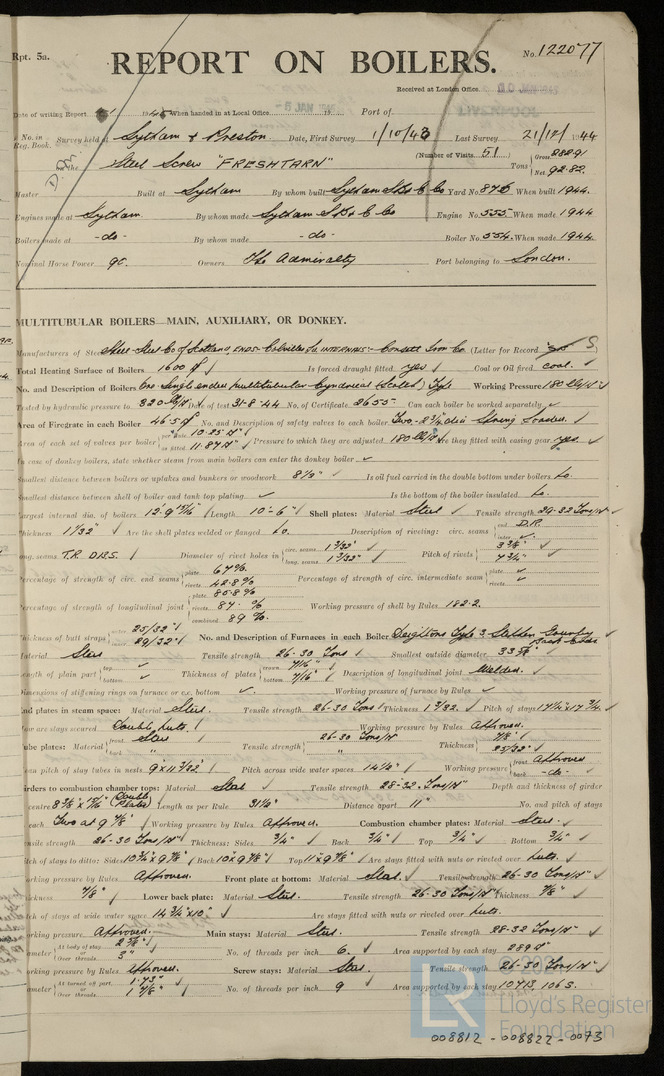 Rpt. 5a.
REPORT ON BOILERS.
No. 122077
Received at London Office
Date of writing Report 19 When handed in at Local Office 19 Port of
No. in Reg. Book. Survey held at Lytham & Preston Date, First Survey 1/10/43 Last Survey 21/12/1944
(Number of Visits 51)
on the Steel Screw "FRESHTARN" Tons Gross 282.91 Net 92.82
Master Built at Lytham By whom built Lytham S.B. & E. Co Yard No. 876 When built 1944.
Engines made at Lytham. By whom made Lytham S.B. & E. Co Engine No. 555. When made 1944
Boilers made at -do- By whom made -do- Boiler No. 554. When made 1944.
Nominal Horse Power 90. Owners The Admiralty Port belonging to London.
MULTITUBULAR BOILERS—MAIN, AUXILIARY, OR DONKEY.
Manufacturers of Steel Steel Co of Scotland, ENDS- Colvilles Ld, INTERNALS:- Consett Iron Co. (Letter for Record S)
Total Heating Surface of Boilers 1600 Is forced draught fitted yes Coal or Oil fired coal.
No. and Description of Boilers One Single ended multitubular Cylindrical (Scotch) Type Working Pressure 180 lb/
Tested by hydraulic pressure to 320 lb/ Date of test 31-8-44 No. of Certificate 2655 Can each boiler be worked separately
Area of Firegrate in each Boiler 46.5 No. and Description of safety valves to each boiler Two - 2 3/4 dia Spring Loaded.
Area of each set of valves per boiler per Rule 10.25 as fitted 11.87 Pressure to which they are adjusted 180 lb/ Are they fitted with easing gear yes.
In case of donkey boilers, state whether steam from main boilers can enter the donkey boiler
Smallest distance between boilers or uptakes and bunkers or woodwork 8 1/2" Is oil fuel carried in the double bottom under boilers No.
Smallest distance between shell of boiler and tank top plating Is the bottom of the boiler insulated No.
Largest internal dia. of boilers Length 10'-6" Shell plates: Material Steel Tensile strength 28-32 Tons/
Thickness 1 1/32" Are the shell plates welded or flanged No. Description of riveting: circ. seams end D.R. inter
long. seams T.R. D.B.S. Diameter of rivet holes in circ. seams 1 3/32" long. seams 1 3/32" Pitch of rivets 3 3/8" 7 3/4"
Percentage of strength of circ. end seams plate 67%. rivets 42.8% Percentage of strength of circ. intermediate seam plate rivets
Percentage of strength of longitudinal joint plate 85.8% rivets 87. % combined 89 %. Working pressure of shell by Rules 182.2.
Thickness of butt straps outer 25/32" inner 29/32" No. and Description of Furnaces in each Boiler Deightons Type 3
Material Steel Tensile strength 26-30 Tons Smallest outside diameter
Length of plain part top bottom Thickness of plates crown 7/16" bottom 7/16" Description of longitudinal joint Welded.
Dimensions of stiffening rings on furnace or c.c. bottom Working pressure of furnace by Rules
End plates in steam space: Material Steel. Tensile strength 26-30 Tons Thickness 1 3/32. Pitch of stays 17 1/4 x 17 3/4
How are stays secured Double Nuts. Working pressure by Rules Approved.
Tube plates: Material front Steel back " Tensile strength 26-30 Tons/ " Thickness 7/8" 25/32"
Mean pitch of stay tubes in nests 9" x 11 3/32 Pitch across wide water spaces 14 1/2" Working pressure front Approved back -do-
Girders to combustion chamber tops: Material Steel Tensile strength 28-32 Tons/ Depth and thickness of girder
at centre Double Plates Length as per Rule 31 1/2" Distance apart 11" No. and pitch of stays
in each Two at 9 7/8 Working pressure by Rules Approved. Combustion chamber plates: Material Steel.
Tensile strength 26-30 Tons/ Thickness: Sides 3/4" Back 3/4" Top 3/4" Bottom 3/4"
Pitch of stays to ditto: Sides 10 3/4 x 9 7/8" Back 10 x 9 7/8" Top 11 x 9 7/8 Are stays fitted with nuts or riveted over Nuts.
Working pressure by Rules Approved. Front plate at bottom: Material Steel. Tensile strength 26-30 Tons/
Thickness 7/8" Lower back plate: Material Steel. Tensile strength 26-30 Tons/ Thickness 7/8"
Pitch of stays at wide water space 14 3/4 x 10" Are stays fitted with nuts or riveted over Nuts.
Working pressure Approved. Main stays: Material Steel. Tensile strength 28-32 Tons/
Diameter At body of stay 2 7/8" or Over threads 3" No. of threads per inch 6. Area supported by each stay 289
Working pressure by Rules Approved. Screw stays: Material Steel Tensile strength 26-30 Tons/
Diameter At turned off part 1.73" or Over threads 1 7/8" No. of threads per inch 9 Area supported by each stay 107.13, 106 S.
Lloyd's Register
Foundation
008812 - 008822 - 0073